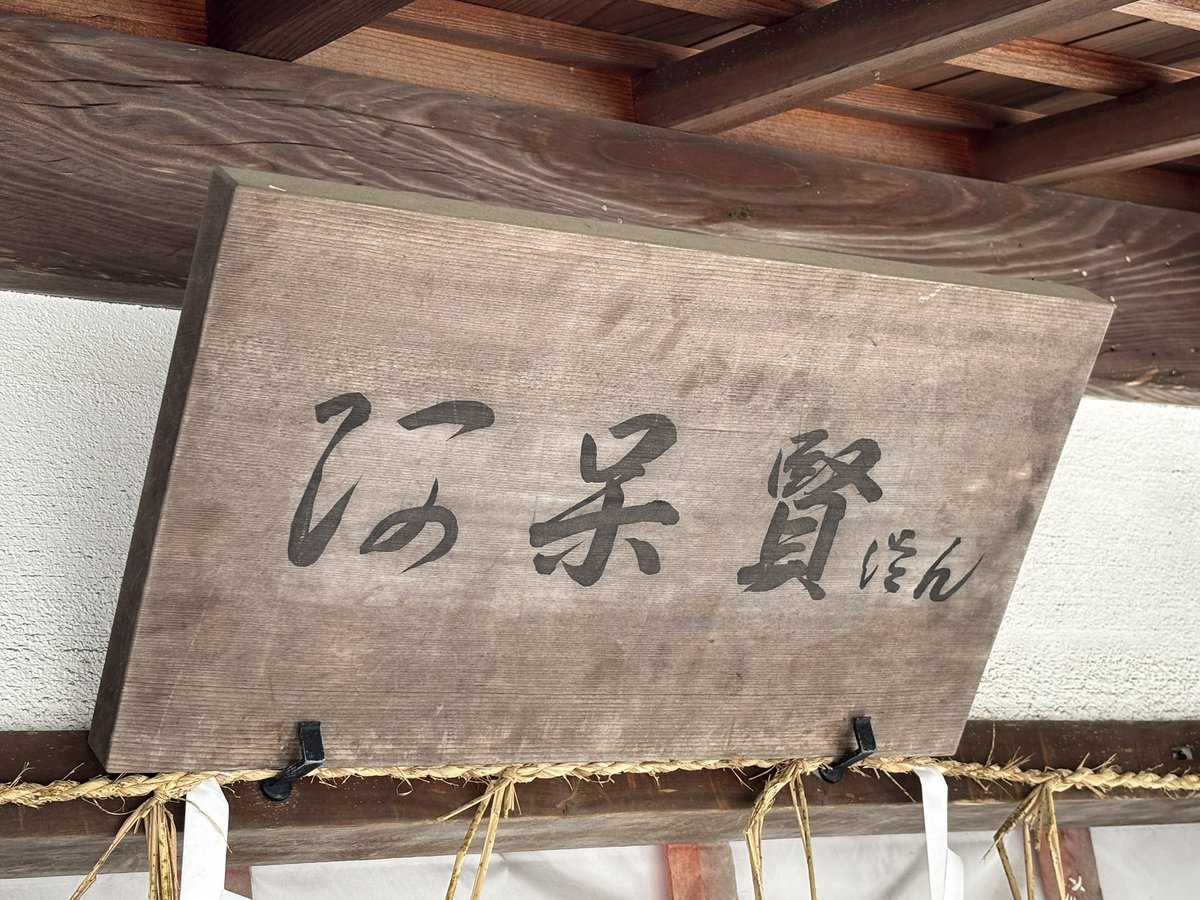 阿呆賢さん